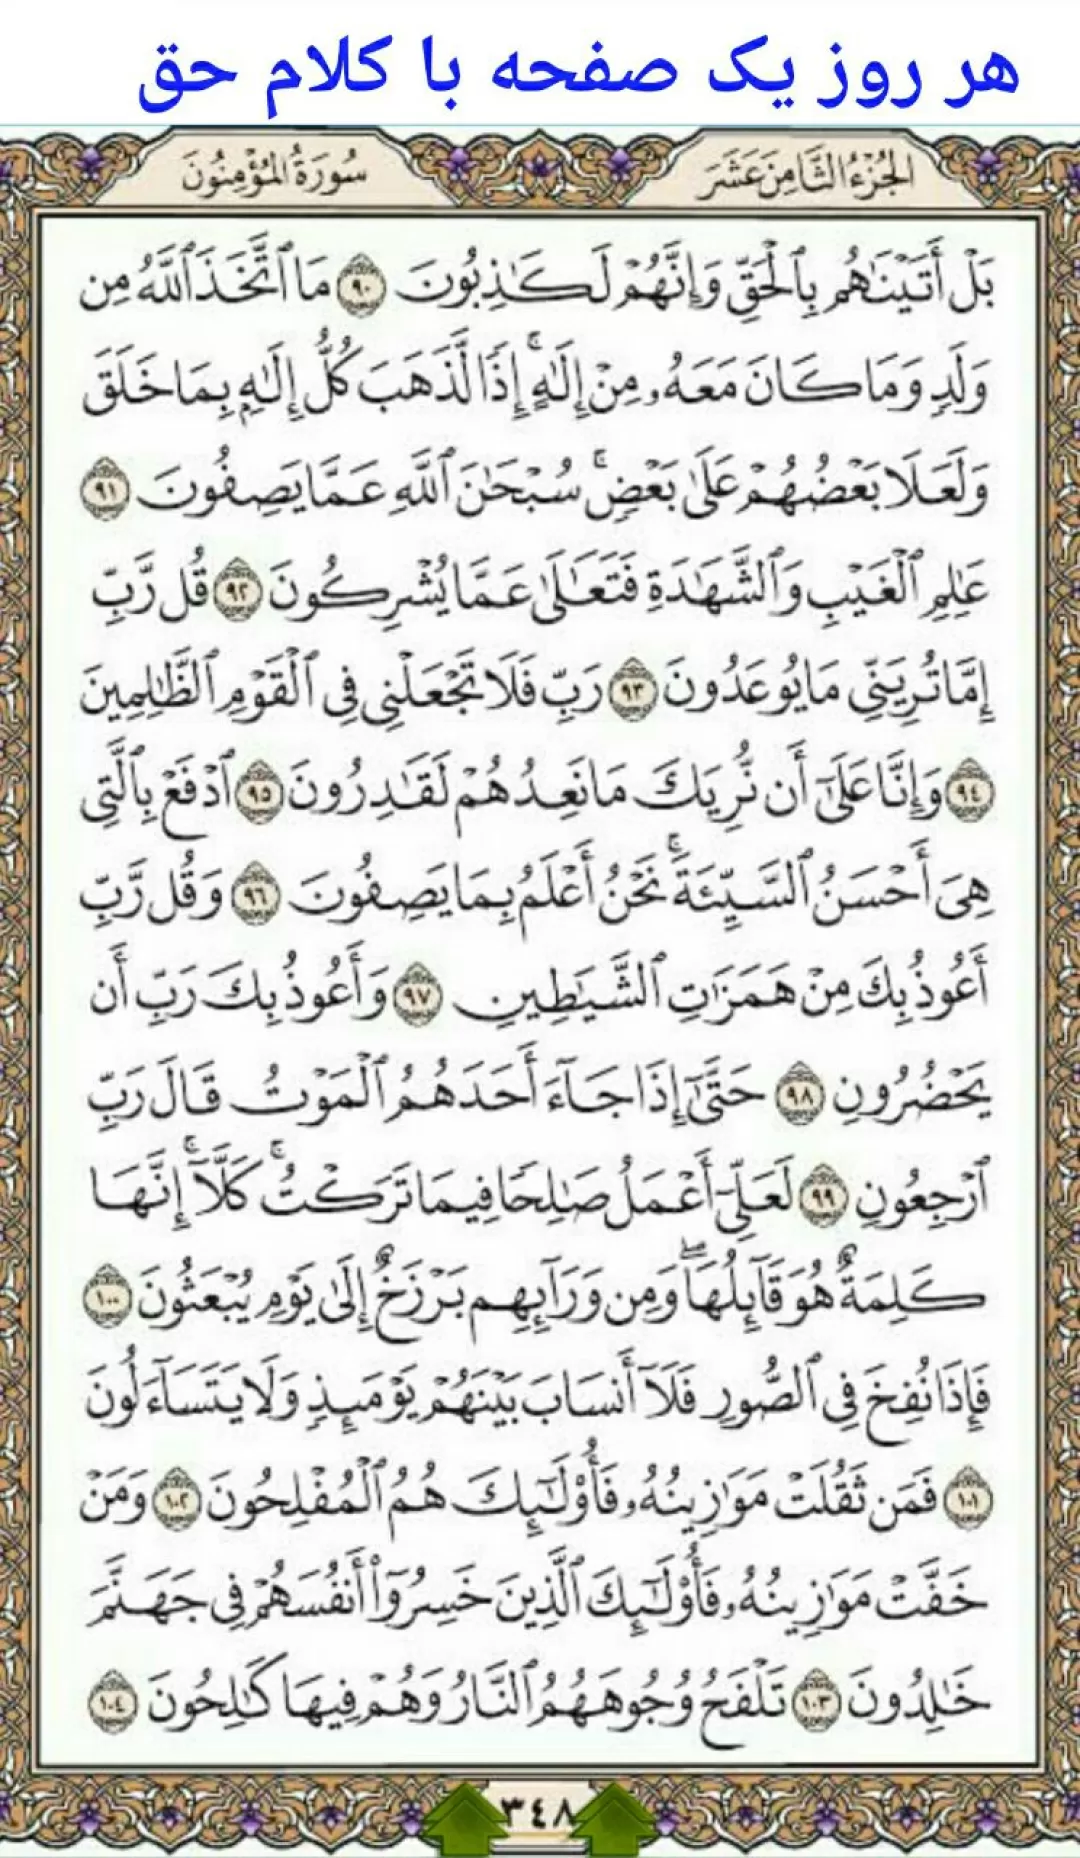 هر روز یک صفحه با کلام حق
الجُزْءُ الثَّامِنَ عَشَرَ
سُورَةُ المُؤْمِنُونَ
بَلْ أَتَيْنَٰهُم بِٱلْحَقِّ وَإِنَّهُمْ لَكَٰذِبُونَ ٩٠ مَا ٱتَّخَذَ ٱللَّهُ مِن
وَلَدٍ وَمَا كَانَ مَعَهُۥ مِنْ إِلَٰهٍ ۚ إِذًا لَّذَهَبَ كُلُّ إِلَٰهٍۭ بِمَا خَلَقَ
وَلَعَلَا بَعْضُهُمْ عَلَىٰ بَعْضٍ ۚ سُبْحَٰنَ ٱللَّهِ عَمَّا يَصِفُونَ ٩١
عَٰلِمِ ٱلْغَيْبِ وَٱلشَّهَٰدَةِ فَتَعَٰلَىٰ عَمَّا يُشْرِكُونَ ٩٢ قُل رَّبِّ
إِمَّا تُرِيَنِّى مَا يُوعَدُونَ ٩٣ رَبِّ فَلَا تَجْعَلْنِى فِى ٱلْقَوْمِ ٱلظَّٰلِمِينَ
٩٤ وَإِنَّا عَلَىٰٓ أَن نُّرِيَكَ مَا نَعِدُهُمْ لَقَٰدِرُونَ ٩٥ ٱدْفَعْ بِٱلَّتِى
هِىَ أَحْسَنُ ٱلسَّيِّئَةَ ۚ نَحْنُ أَعْلَمُ بِمَا يَصِفُونَ ٩٦ وَقُل رَّبِّ
أَعُوذُ بِكَ مِنْ هَمَزَٰتِ ٱلشَّيَٰطِينِ ٩٧ وَأَعُوذُ بِكَ رَبِّ أَن
يَحْضُرُونِ ٩٨ حَتَّىٰٓ إِذَا جَآءَ أَحَدَهُمُ ٱلْمَوْتُ قَالَ رَبِّ
ٱرْجِعُونِ ٩٩ لَعَلِّىٓ أَعْمَلُ صَٰلِحًا فِيمَا تَرَكْتُ ۚ كَلَّآ ۚ إِنَّهَا
كَلِمَةٌ هُوَ قَآئِلُهَا ۖ وَمِن وَرَآئِهِم بَرْزَخٌ إِلَىٰ يَوْمِ يُبْعَثُونَ ١٠٠
فَإِذَا نُفِخَ فِى ٱلصُّورِ فَلَآ أَنسَابَ بَيْنَهُمْ يَوْمَئِذٍ وَلَا يَتَسَآءَلُونَ
١٠١ فَمَن ثَقُلَتْ مَوَٰزِينُهُۥ فَأُو۟لَٰٓئِكَ هُمُ ٱلْمُفْلِحُونَ ١٠٢ وَمَنْ
خَفَّتْ مَوَٰزِينُهُۥ فَأُو۟لَٰٓئِكَ ٱلَّذِينَ خَسِرُوٓا۟ أَنفُسَهُمْ فِى جَهَنَّمَ
خَٰلِدُونَ ١٠٣ تَلْفَحُ وُجُوهَهُمُ ٱلنَّارُ وَهُمْ فِيهَا كَٰلِحُونَ ١٠٤
٣٤٨